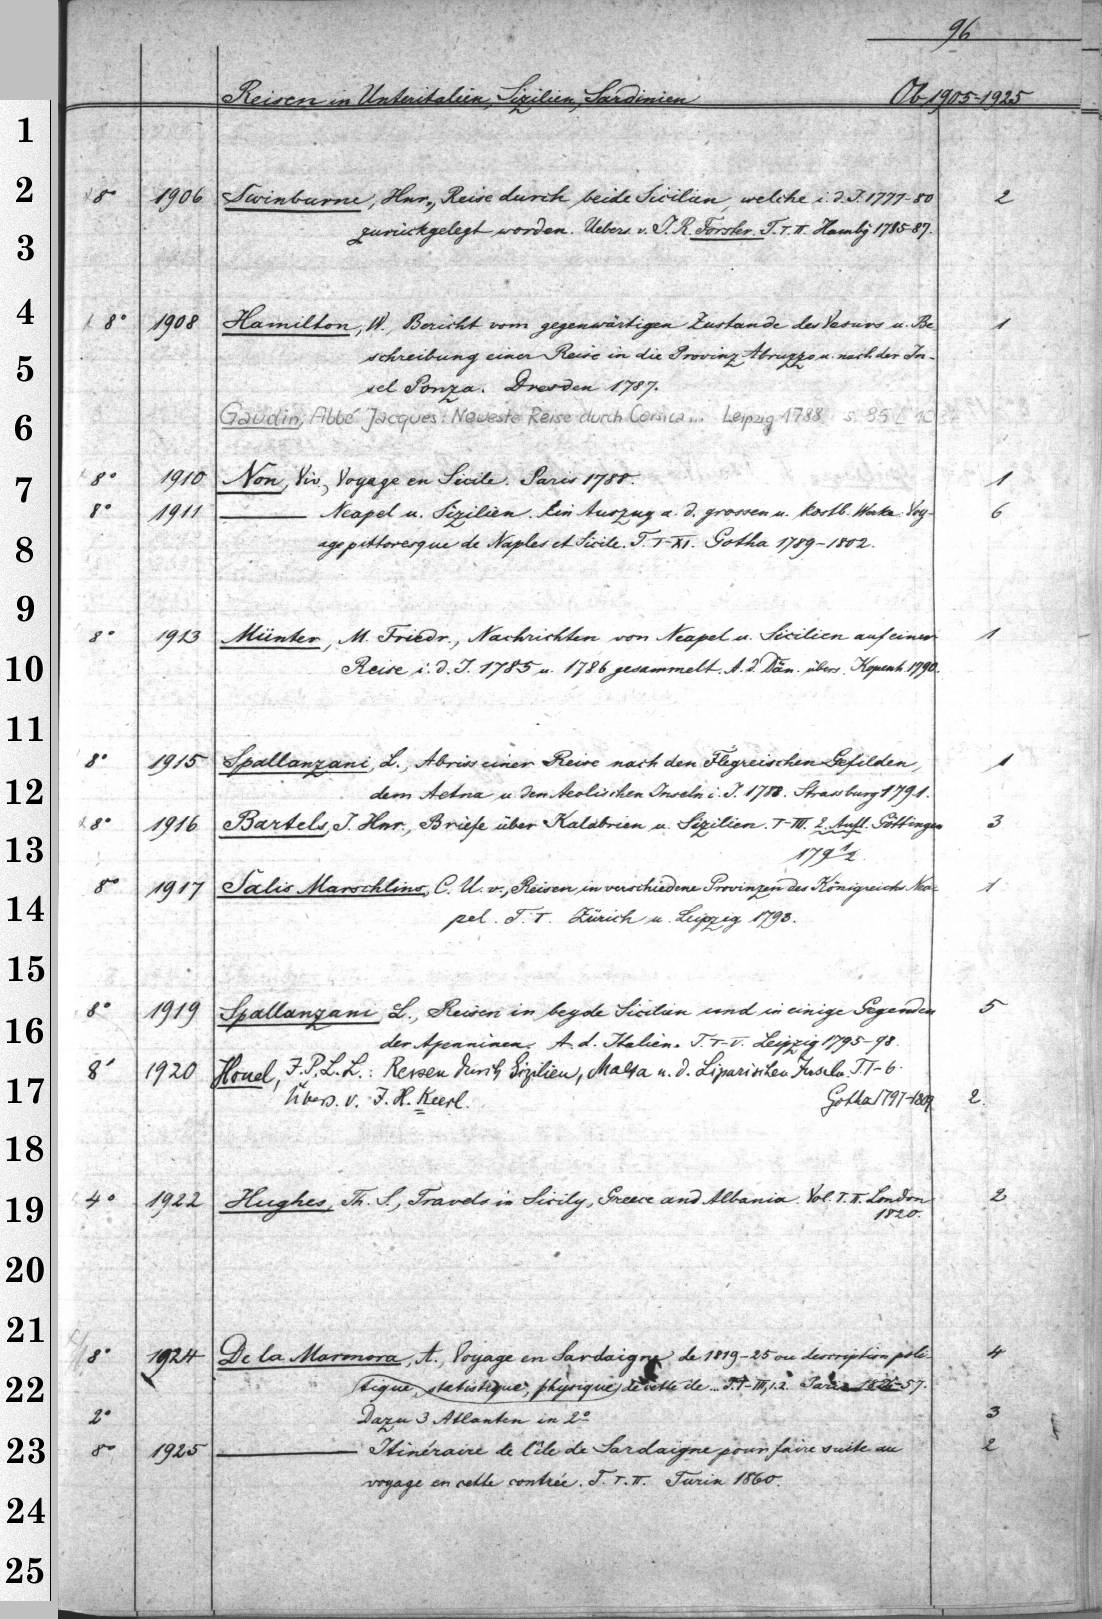 96
Reisen in Unteritalien, Sizilien, Sardinien Ob 1905-1925
1
2 8° 1906 Swinburne, Hnr., Reise durch beide Sicilien, welche i. d. J. 1777-80 2
3 zurückgelegt worden. Uebers. v. J. R. Forster. T. I. II. Hambg 1785-87.
4 8° 1908 Hamilton, W., Bericht vom gegenwärtigen Zustande des Vesuvs u. Be- 1
5 schreibung einer Reise in die Provinz Abruzzo u. nach der In-
sel Ponza. Dresden 1787.
6 Gaudin, Abbé Jacques: Neueste Reise durch Corsica... Leipzig 1788 s. 85
7 8° 1910 Non, Viv., Voyage en Sicile. Paris 1788. 1
8° 1911 ——— Neapel u. Sizilien. Ein Auszug a. d. grossen u. kostb. Werke Voy- 6
8 age pittoresque de Naples et Sicile. T. I-XI. Gotha 1789-1802.
9
8° 1913 Münter, M. Friedr., Nachrichten von Neapel u. Sicilien auf einer 1
10 Reise i. d. J. 1785 u. 1786 gesammelt. A. d. Dän. übers. Kopenh. 1790.
11
8° 1915 Spallanzani, L., Abriss einer Reise nach den Flegreischen Gefilden, 1
12 dem Aetna u. den Aeolischen Inseln i. J. 1788. Strassburg 1791.
8° 1916 Bartels, J. Hnr., Briefe über Kalabrien u. Sizilien. I-III. 2. Aufl. Göttingen 3
13 179½
8° 1917 Salis Marschlins, C. U. v., Reisen in verschiedene Provinzen des Königreichs Nea- 1
14 pel. T. I. Zürich u. Leipzig 1793.
15
8° 1919 Spallanzani L., Reisen in beyde Sicilien und in einige Gegenden 5
16 der Apenninen. A. d. Italien. T. I-V. Leipzig 1795-98.
8° 1920 Houel, F. P. L. L.: Reisen durch Sizilien, Malta u. d. Liparischen Inseln. T 1-6.
17 Übers. v. J. H. Keerl. Gotha 1797-1809 2.
18
19 4° 1922 Hughes, Th. S., Travels in Sicily, Greece and Albania. Vol. I. II. London 2
1820.
20
21
8° 1924 De la Marmora, A., Voyage en Sardaigne de 1819-25 ou description poli- 4
22 tique, statistique, physique de cette île... T. I-III,1.2. Paris 1826-57.
2° Dazu 3 Atlanten in 2° 3
23 8° 1925 ——— Itinéraire de l'île de Sardaigne pour faire suite au 2
voyage en cette contrée. T. I. II. Turin 1860.
24
25